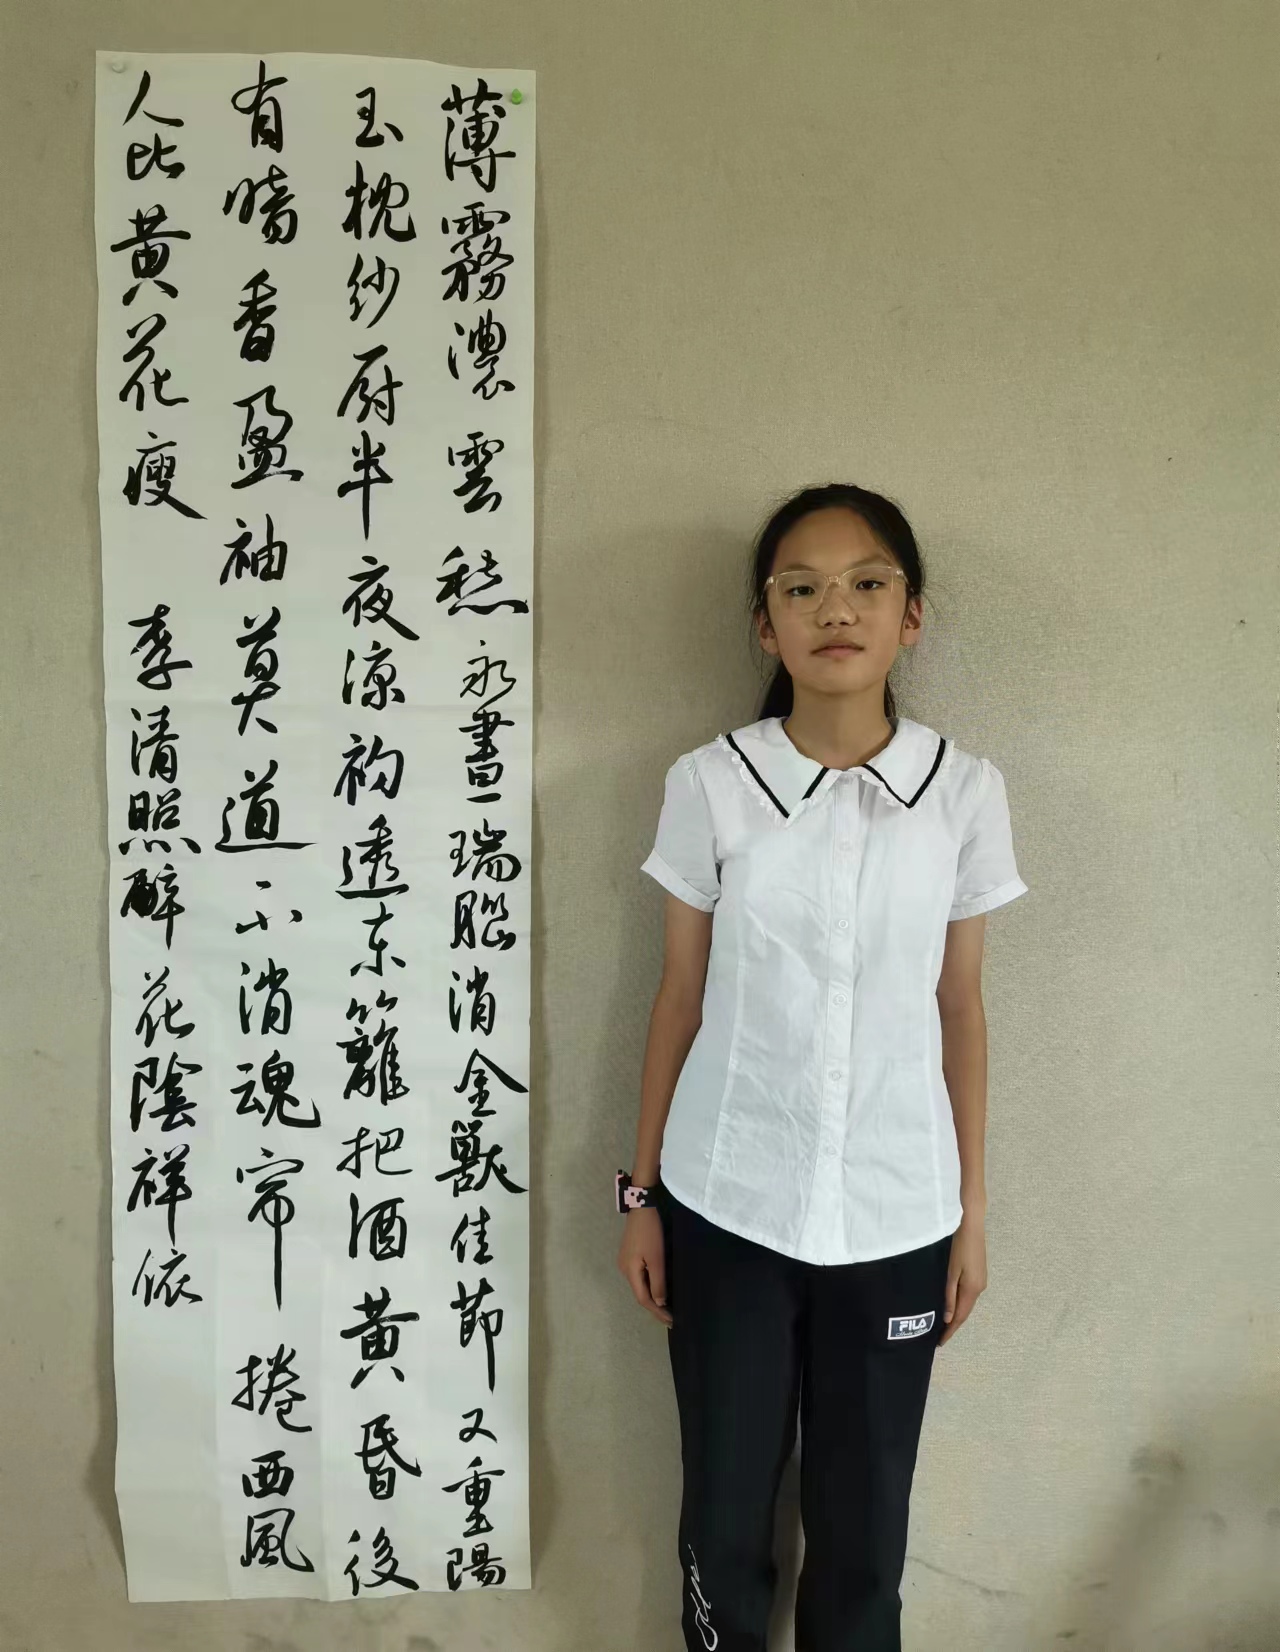 薄霧濃雲愁永晝瑞腦消金獸佳節又重陽
玉枕紗厨半夜涼初透东籬把酒黄昏後
有暗香盈袖莫道不消魂帘捲西風
人比黄花瘦 李清照醉花陰祥依
FILA